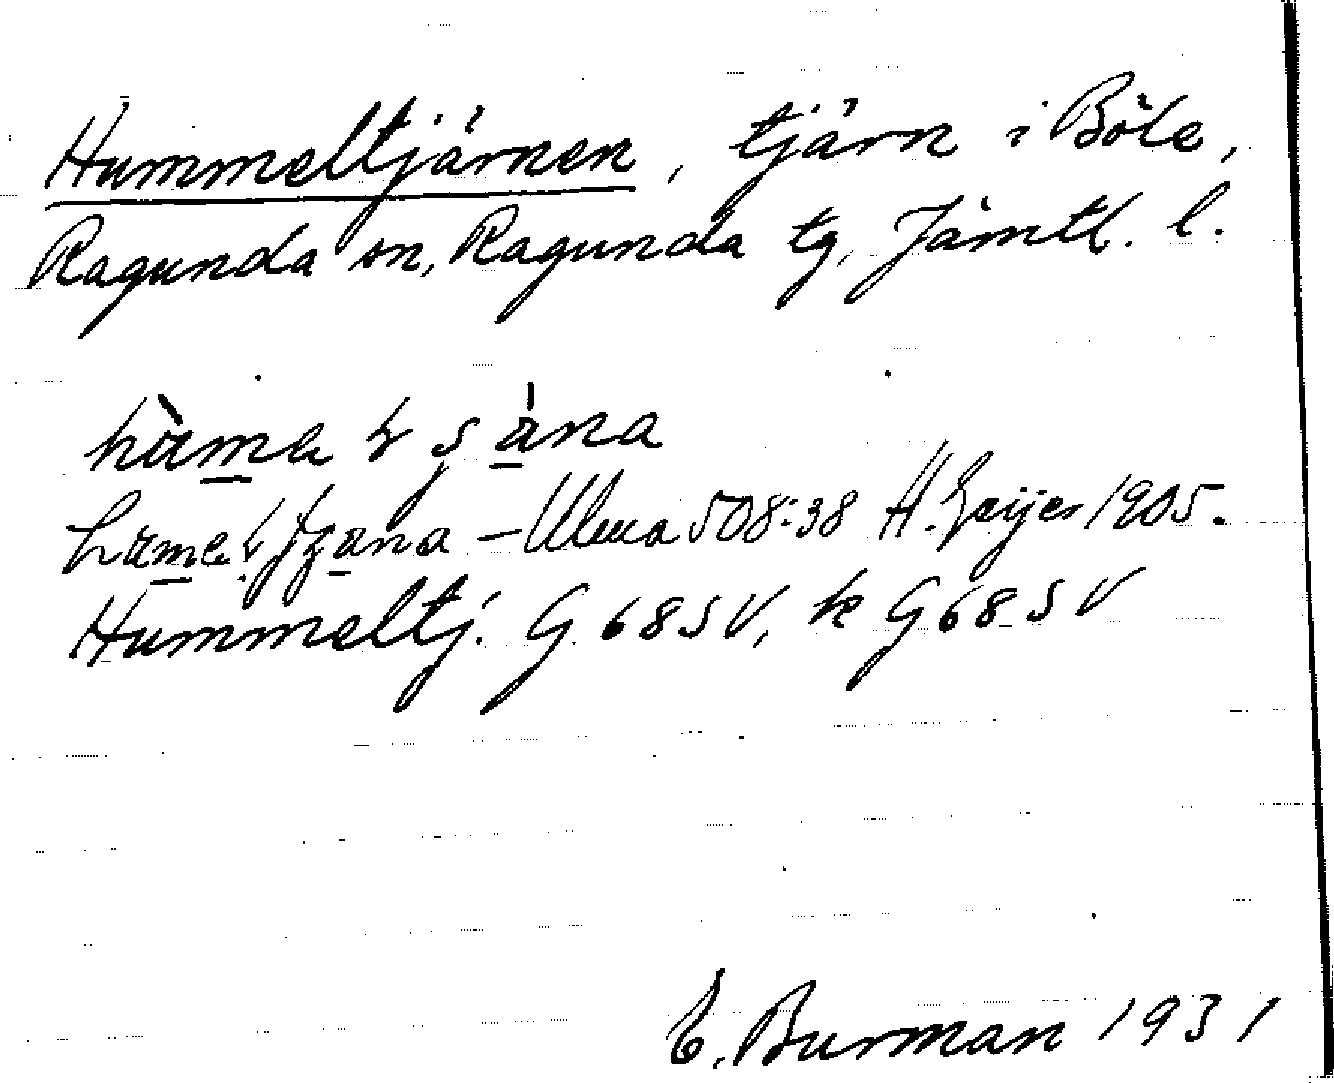 Hummeltjärnen, tjärn i Böle,
Ragunda sn, Ragunda tg, Jämtl. l.
Ulma 508:38 H. Geijer 1905.
Hummeltj. G 68 SV, k G 68 SV
E. Burman 1931